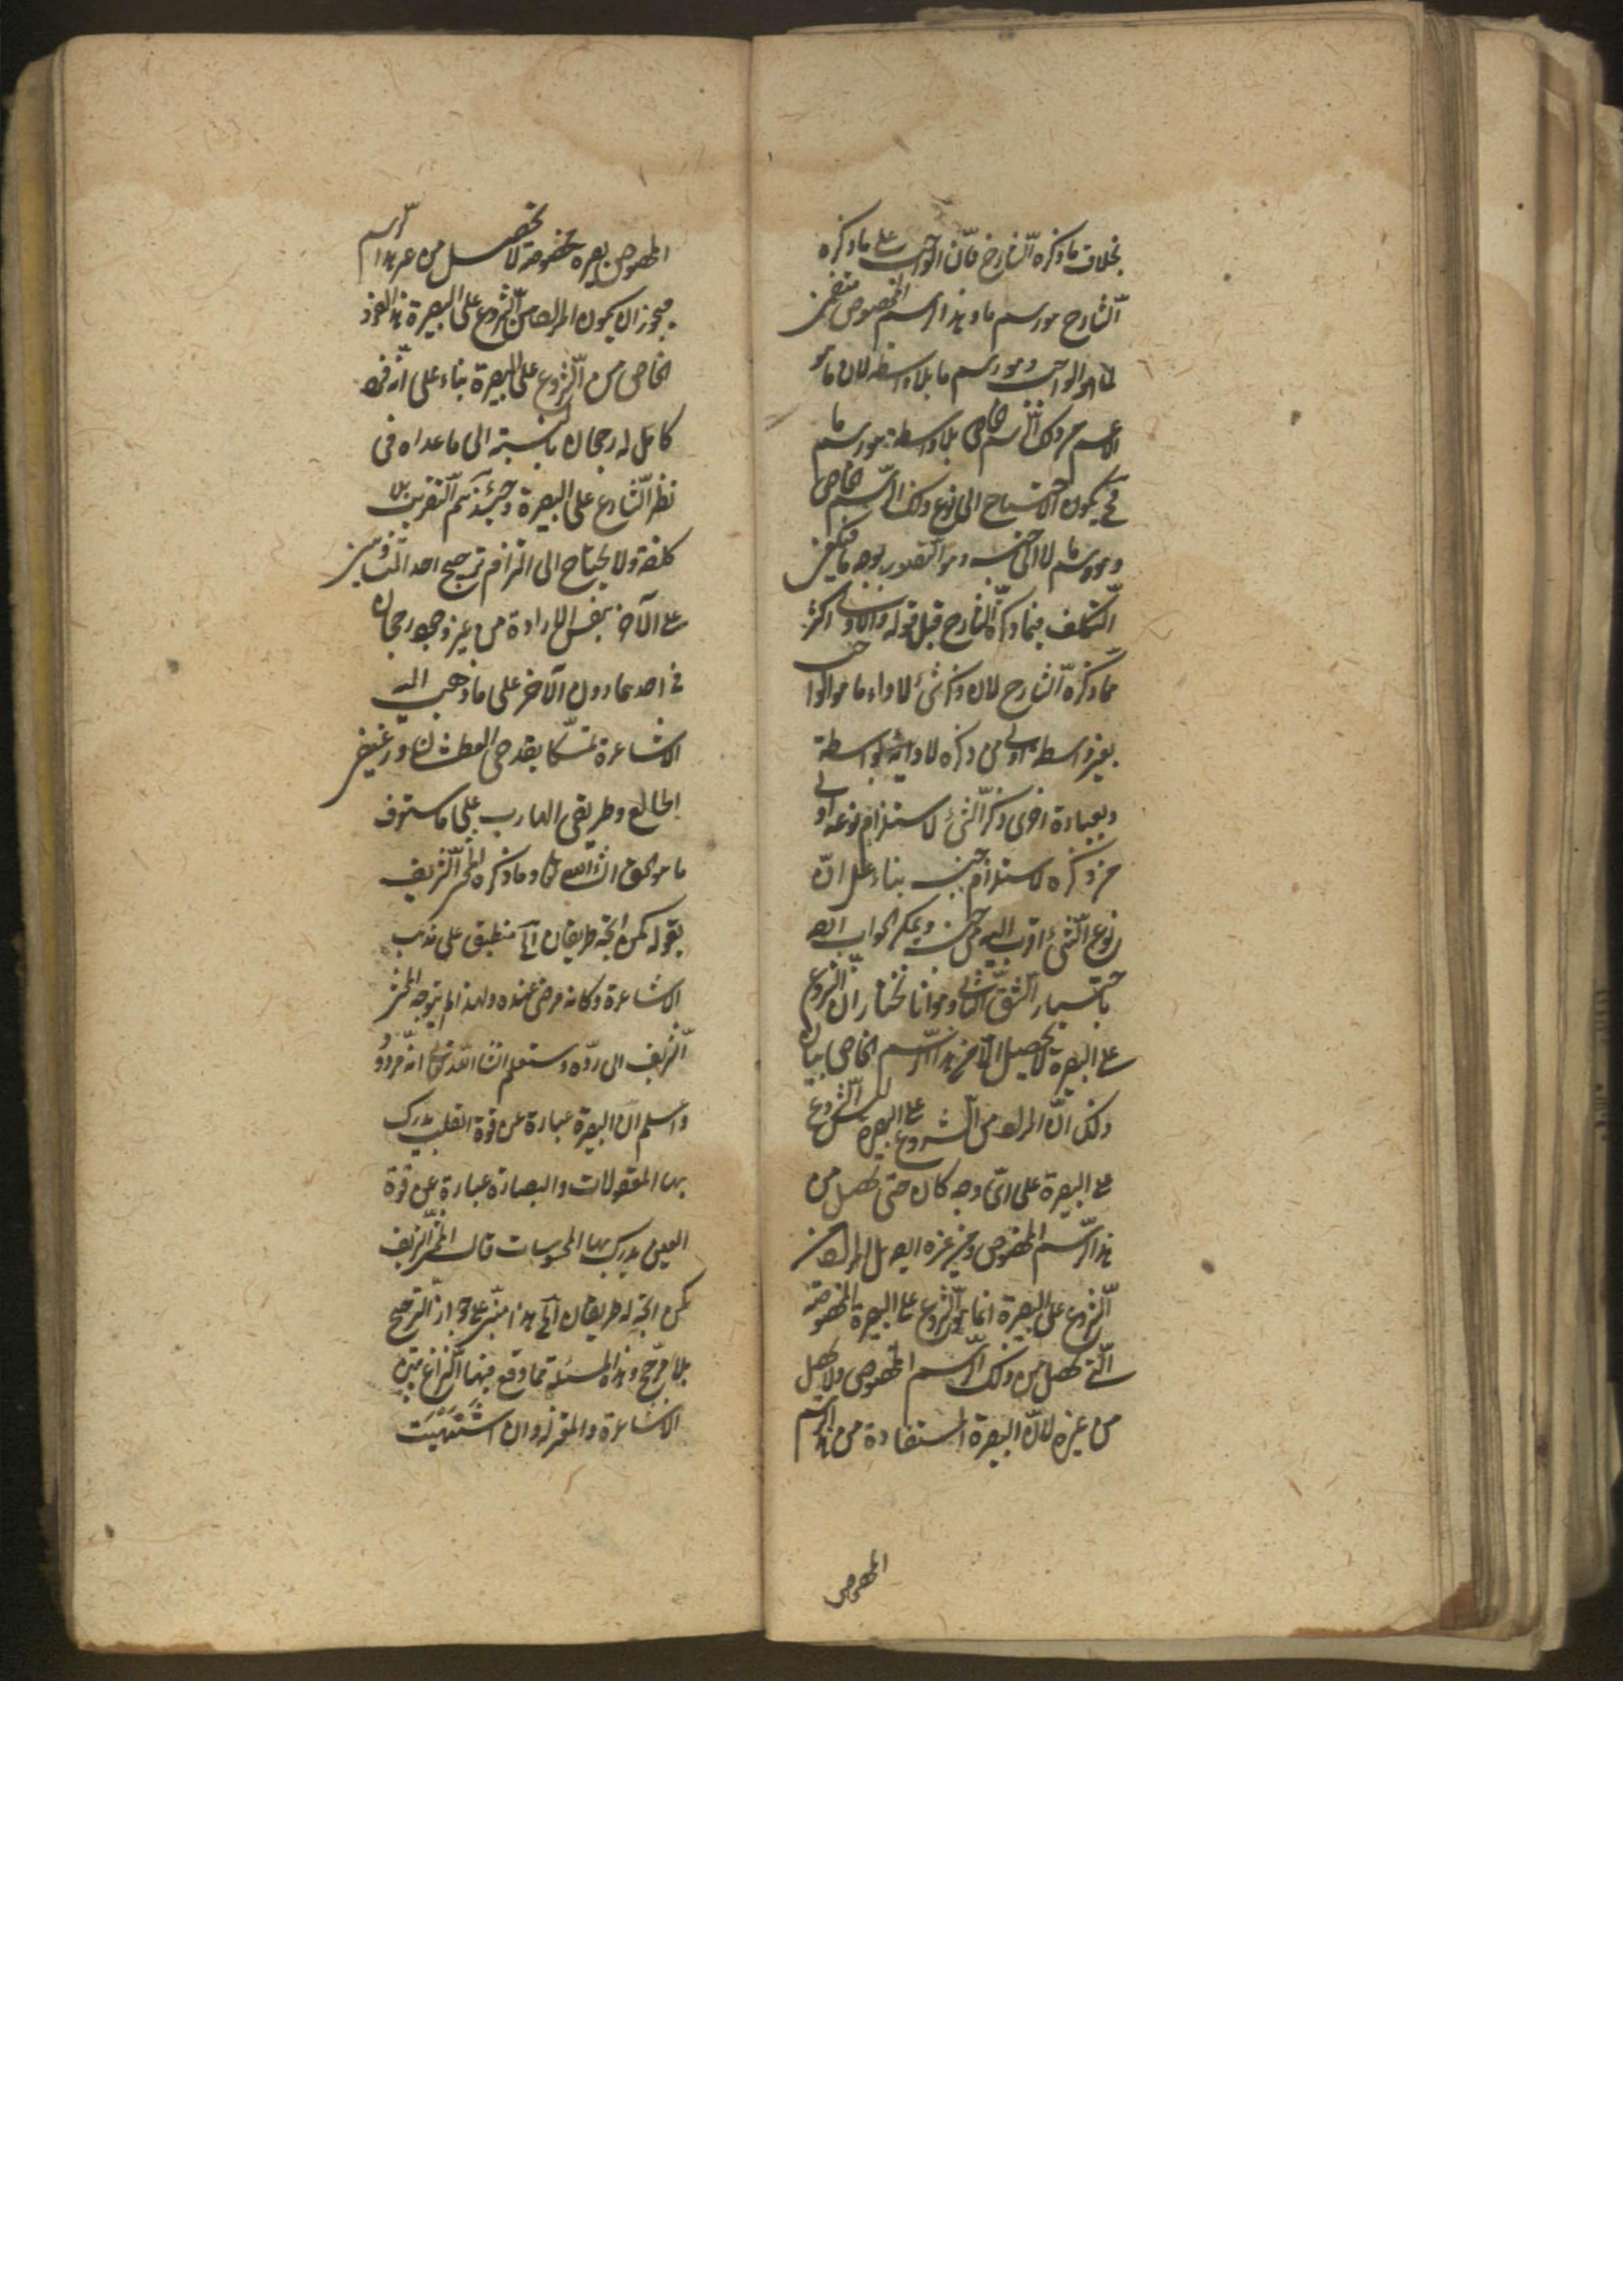 بخلاف ما ذكره الشارح فان الواجب على ما ذكره
الشارح هو رسم ما وهذا الرسم المخصوص متضمن
لما هو الواجب وهو رسم ما بلا واسطة لان ما هو
الاعم من ذلك الرسم الخاص بلا واسطة هو رسم ما
فح يكون الاحتياج الى نوع ذلك الرسم الخاص
وهو رسم ما لا الى جنسه وهو التصور بوجه ما فيكون
التكلف فيما ذكره الشارح قبل قوله والاولى اكثر
مما ذكره الشارح لان ذكر شئ لاداء ما هو الواجب
بغير واسطة اولى من ذكره لادائه بواسطة
وبعبارة اخرى ذكر الشئ لاستلزام نوعه اولى
من ذكره لاستلزام جنسه بناء على ان
نوع الشئ اقرب اليه من جنسه ويمكن الجواب
باختيار الشق الثانى وهو انا نختار ان الشروع
على البصيرة لا يحصل الا من هذا الرسم الخاص بيان
ذلك ان المراد من الشروع على البصيرة ليس الشروع
على البصيرة على اى وجه كان حتى يحصل من
هذا الرسم المخصوص ومن غيره ايضا بل المراد من
الشروع على البصيرة انما هو الشروع على البصيرة المخصوصة
التى تحصل من ذلك الرسم المخصوص ولا تحصل
من غيره لان البصيرة المستفادة من هذا الرسم
المخصوص
المخصوص بصيرة مخصوصة لا تحصل من غير هذا الرسم
فيجوز ان يكون المراد من الشروع على البصيرة هذا الفرد
الخاص من الشروع على البصيرة بناء على انه فرد
كامل له رجحان بالنسبة الى ما عداه فى
نظر الشارع على البصيرة وحينئذ يتم التقريب بلا
كلفة ولا يحتاج الى التزام ترجيح احد المتساويين
على الآخر بنفس الارادة من غير وجود رجحان
فى احدهما دون الآخر على ما ذهب اليه
الاشاعرة تمسكا بقدحى العطشان ورغيفى
الجائع وطريقى الهارب على ما ستعرف
ما هو الحق ان شاء الله تعالى وما ذكره المحشى الشريف
بقوله كمن اتجه طريقان الخ منطبق على مذهب
الاشاعرة وكانه مرضى عنده ولهذا لم يتوجه المحشى
الشريف الى رده وستعلم ان شاء الله تعالى انه مردود
واعلم ان البصيرة عبارة عن قوة القلب يدرك
بها المعقولات والبصارة عبارة عن قوة
العين يدرك بها المحسوسات قال المحشى الشريف
كمن اتجه له طريقان الخ هذا مبنى على جواز الترجيح
بلا مرجح وهذه المسئلة مما وقع فيها النزاع بين
الاشاعرة والمعتزلة وان اشتهيت